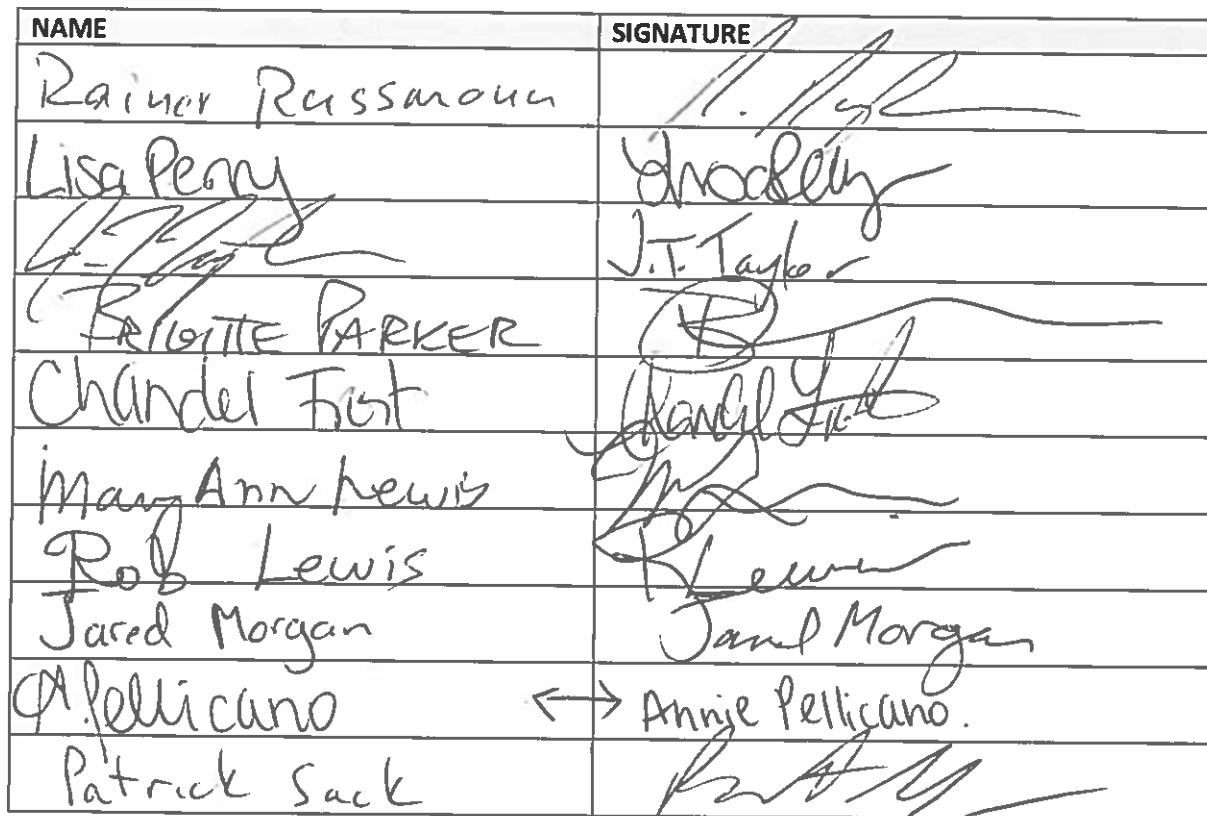 NAME SIGNATURE
Rainer Rassmann
Lisa Perry
J.T. Taylor
BRIGITTE PARKER
Chandel Frost
Mary Ann Lewis
Rob Lewis R Lewis
Jared Morgan Jared Morgan
A Pellicano ↔ Annie Pellicano.
Patrick Sack